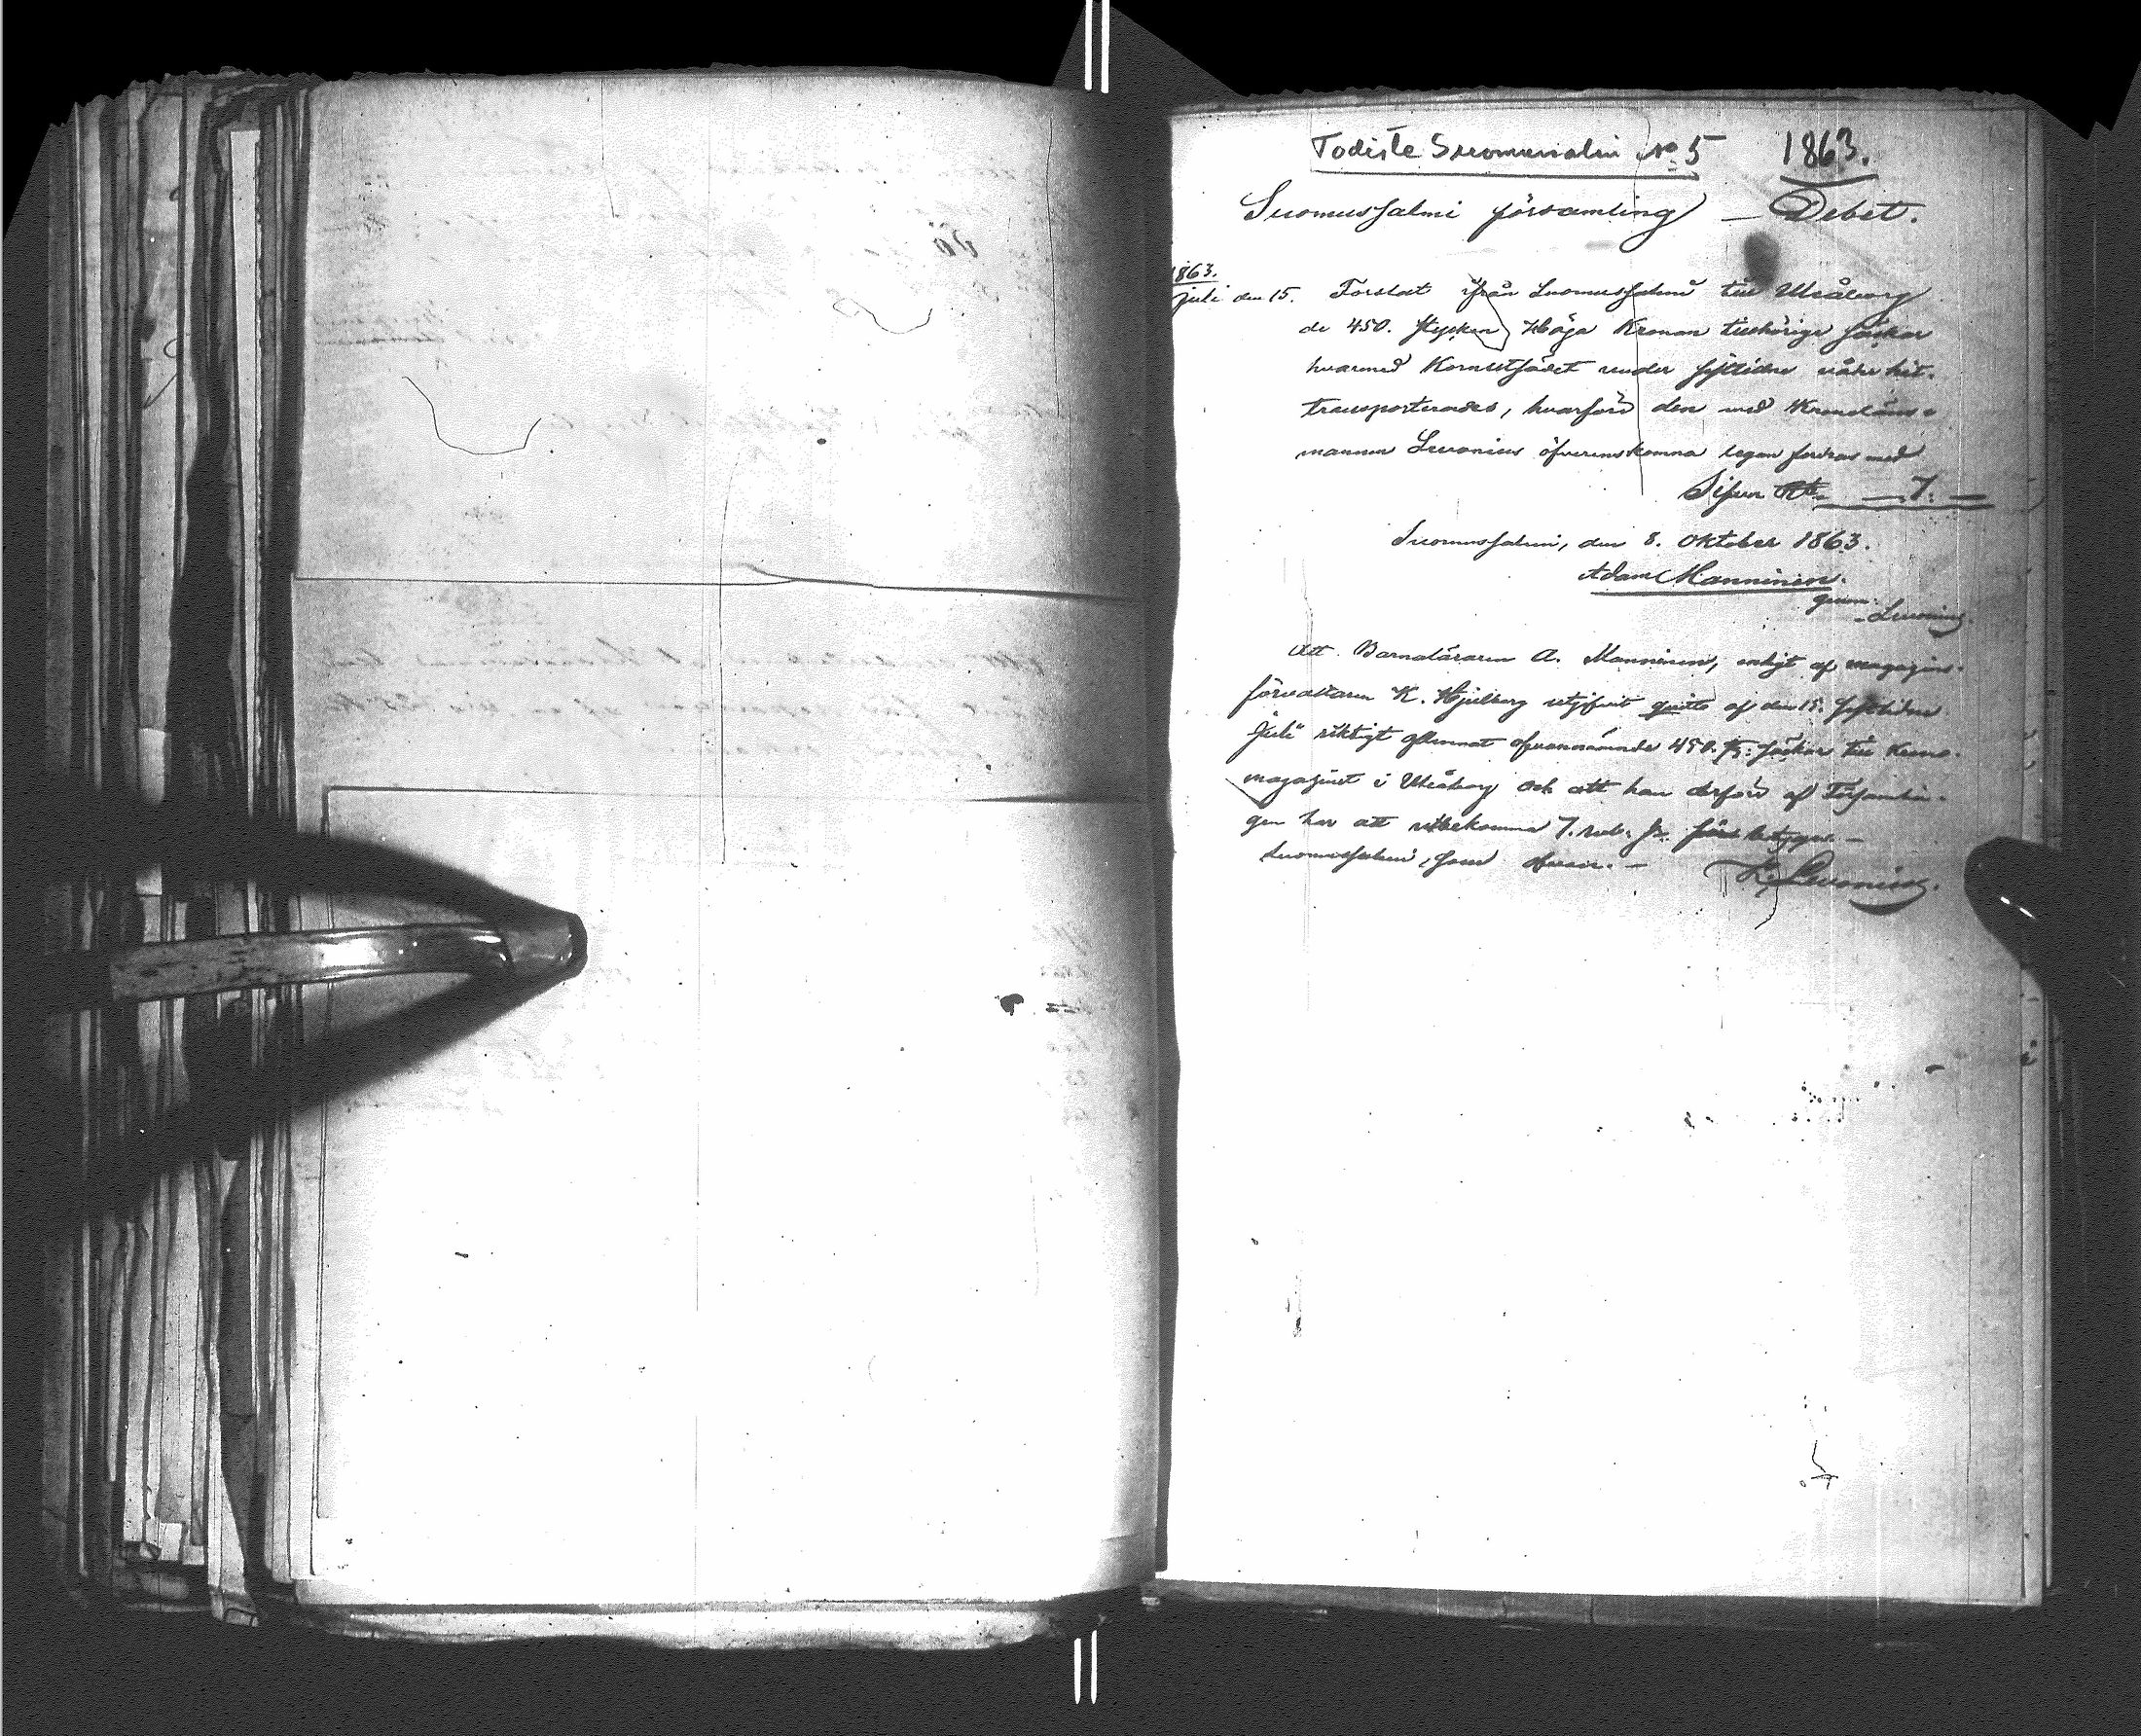 Todiste Suomussalmi No 5 1863.
Suomussalmi församling — Debet.
1863.
Juli den 15. Forslat ifrån Suomussalmi till Uleåborg
de 450. stycken Höga Kronan tillhörige säckar
hvarmed Kornutsädet under sistlidne våhr hit-
transporterades, hvarföre den med Kronoläns-
mannen Levonius öfverenskomna legan fordras med
Silfver Rb. — 7. —
Suomussalmi, den 8. Oktober 1863.
Adam Manninen.
genom
Levonius
Att Barnaläraren A. Manninen, enligt af magazins-
förvaltaren K. Hjelberg utgifvit qvitto af den 15. sistlidne
Juli riktigt aflemnat ofvannämnde 450. st: säckar till Krono-
magazinet i Uleåborg och att han derföre af Församlin-
gen har att utbekomma 7. rub: sr. betygar —
Suomussalmi, som ofvan. — K. Levonius.